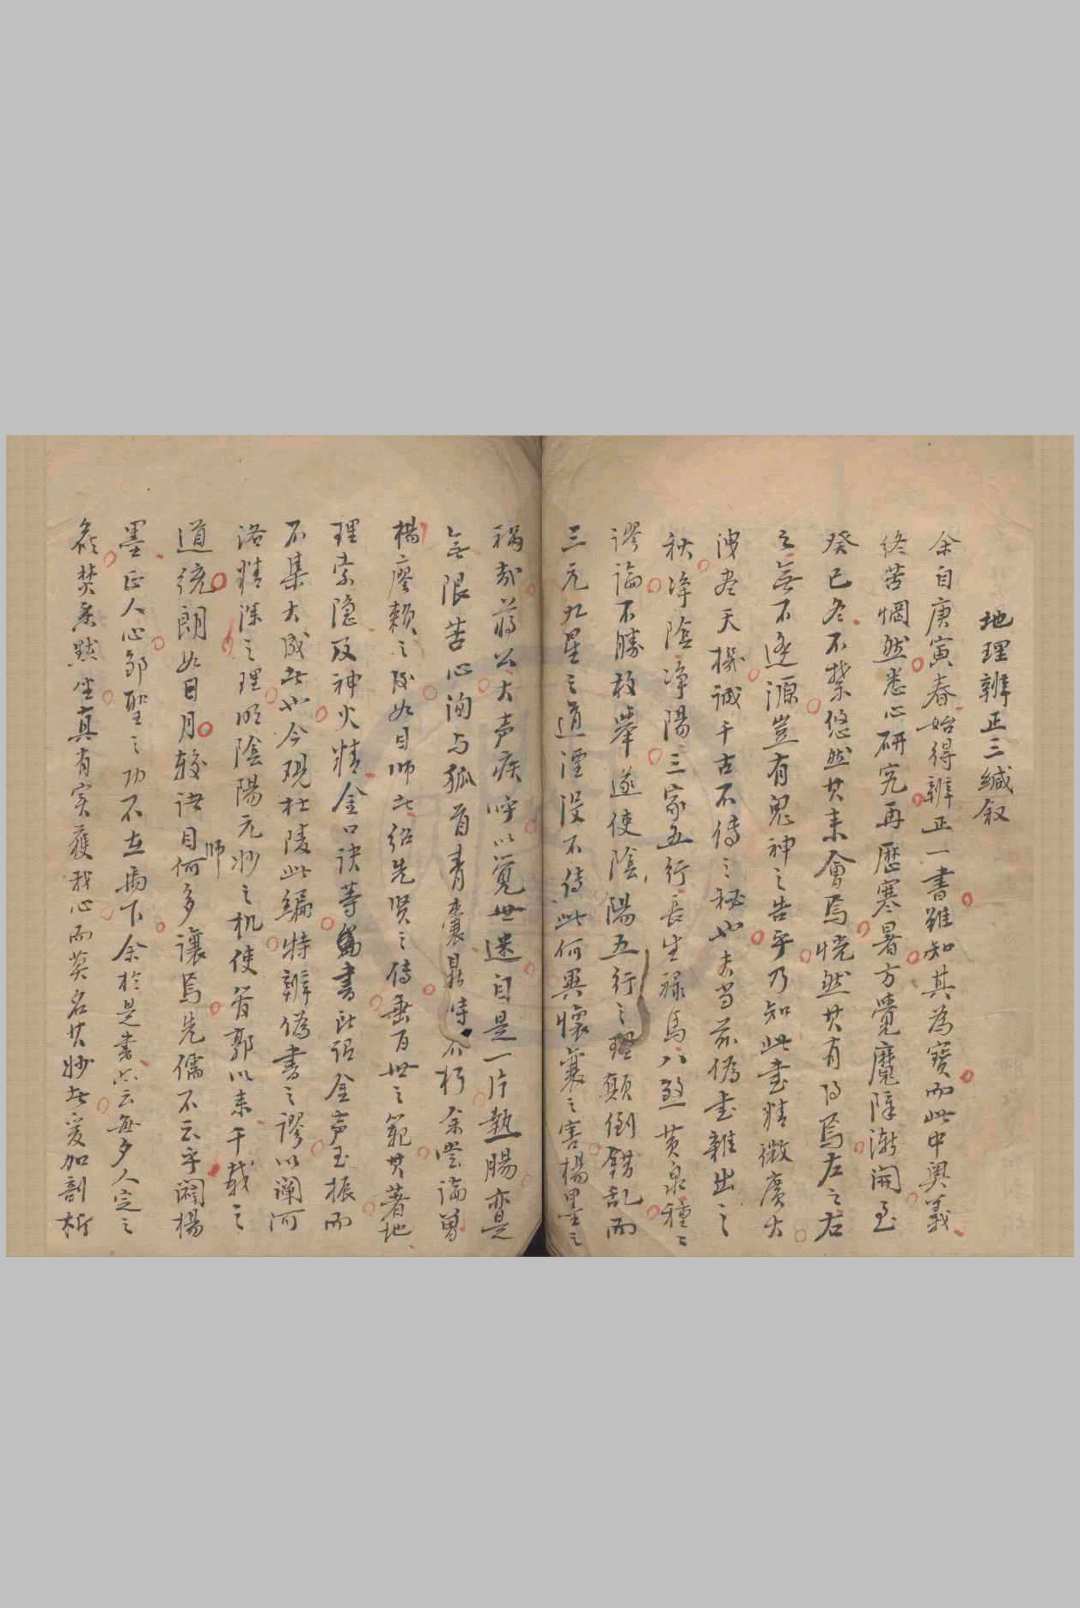 地理辨正三緘叙
余自庚寅春始得辨正一書雖知其為寶而此中奧義
終苦惘然悉心研究再歷寒暑方覺魔障漸開至
癸巳冬不禁悠然其来會焉恍然其有得焉左之右
之無不逢源豈有鬼神之告乎乃知此書精微廣大
洩盡天機誠千古不傳之秘也夫当前偽书雜出之
秋净陰凈陽三家五行長生禄馬八煞黄泉種〻
謬論不勝枚舉遂使陰陽五行之理顛倒錯乱而
三元九星之道湮沒不傳此何異懷襄之害楊墨之
禍哉蒋公大声疾呼以覚世迷自是一片熱腸亦是
無限苦心洵与狐首青囊昙時不朽余嘗論曾
楊廖賴之後如目师者紹先贤之傳垂百世之範其著地
理索隐及神火精金口诀等篇書皆金声玉振而
不集大成者也今观杜陵此編特辨偽書之謬以阐河
洛精深之理明陰陽元妙之机使管郭以来千載之
道統朗如日月較诸目师何多讓焉先儒不云乎闢楊
墨正人心鄒聖之功不在禹下余於是書亦云每夕人定之
後焚香默坐真有实獲我心而莫名其妙者爰加剖析